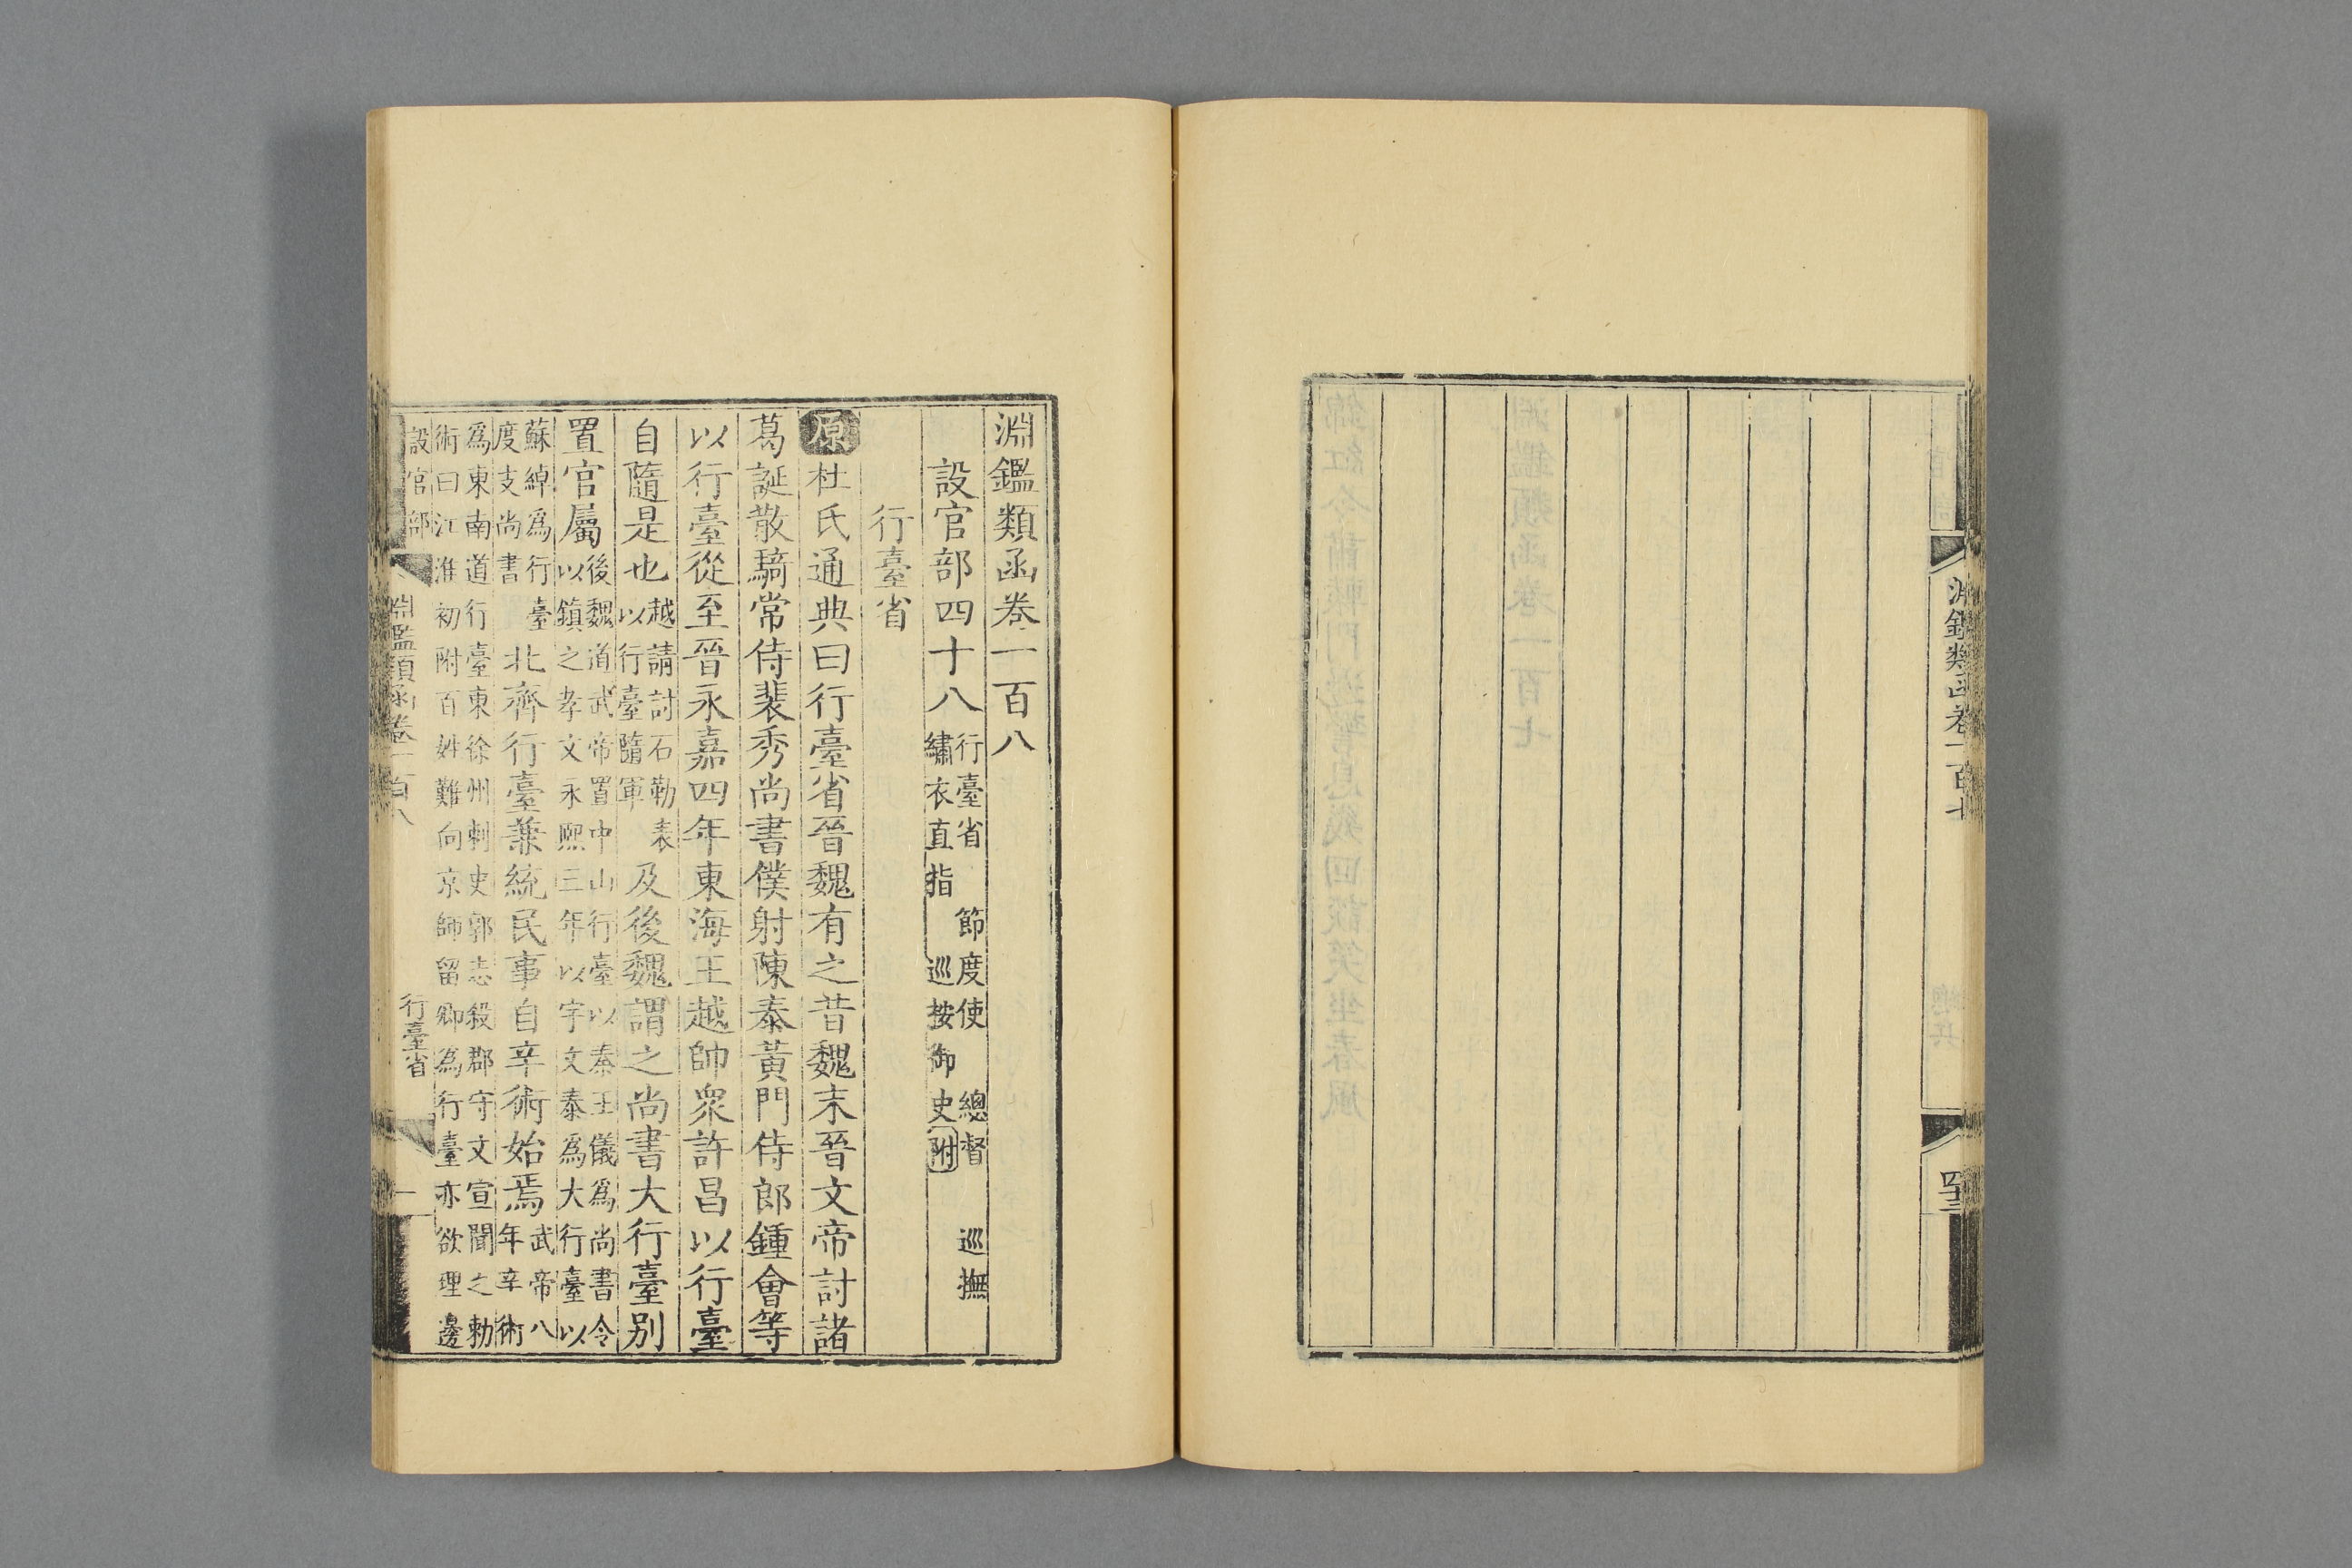 淵鑑類函卷一百七
淵鑑類函卷一百八
設官部四十八 行臺省 節度使 總督 巡撫
繡衣直指 巡按御史附
行臺省
原杜氏通典曰行臺省晉魏有之昔魏末晉文帝討諸
葛誕散騎常侍裴秀尚書僕射陳泰黃門侍郎鍾會等
以行臺從至晉永嘉四年東海王越帥衆許昌以行臺
自隨是也越請討石勒表
以行臺隨軍及後魏謂之尚書大行臺別
置官屬後魏道武帝置中山行臺以秦王儀爲尚書令
以鎮之孝文永熙三年以宇文泰爲大行臺以
蘇綽爲行臺
度支尚書北齊行臺兼統民事自辛術始焉武帝八
年辛術
爲東南道行臺東徐州刺史郭志殺郡守文宣聞之勅
術曰江淮初附百姓難向京師留卿爲行臺亦欲理邊
設官部
淵鑑類函卷一百八
行臺省
一